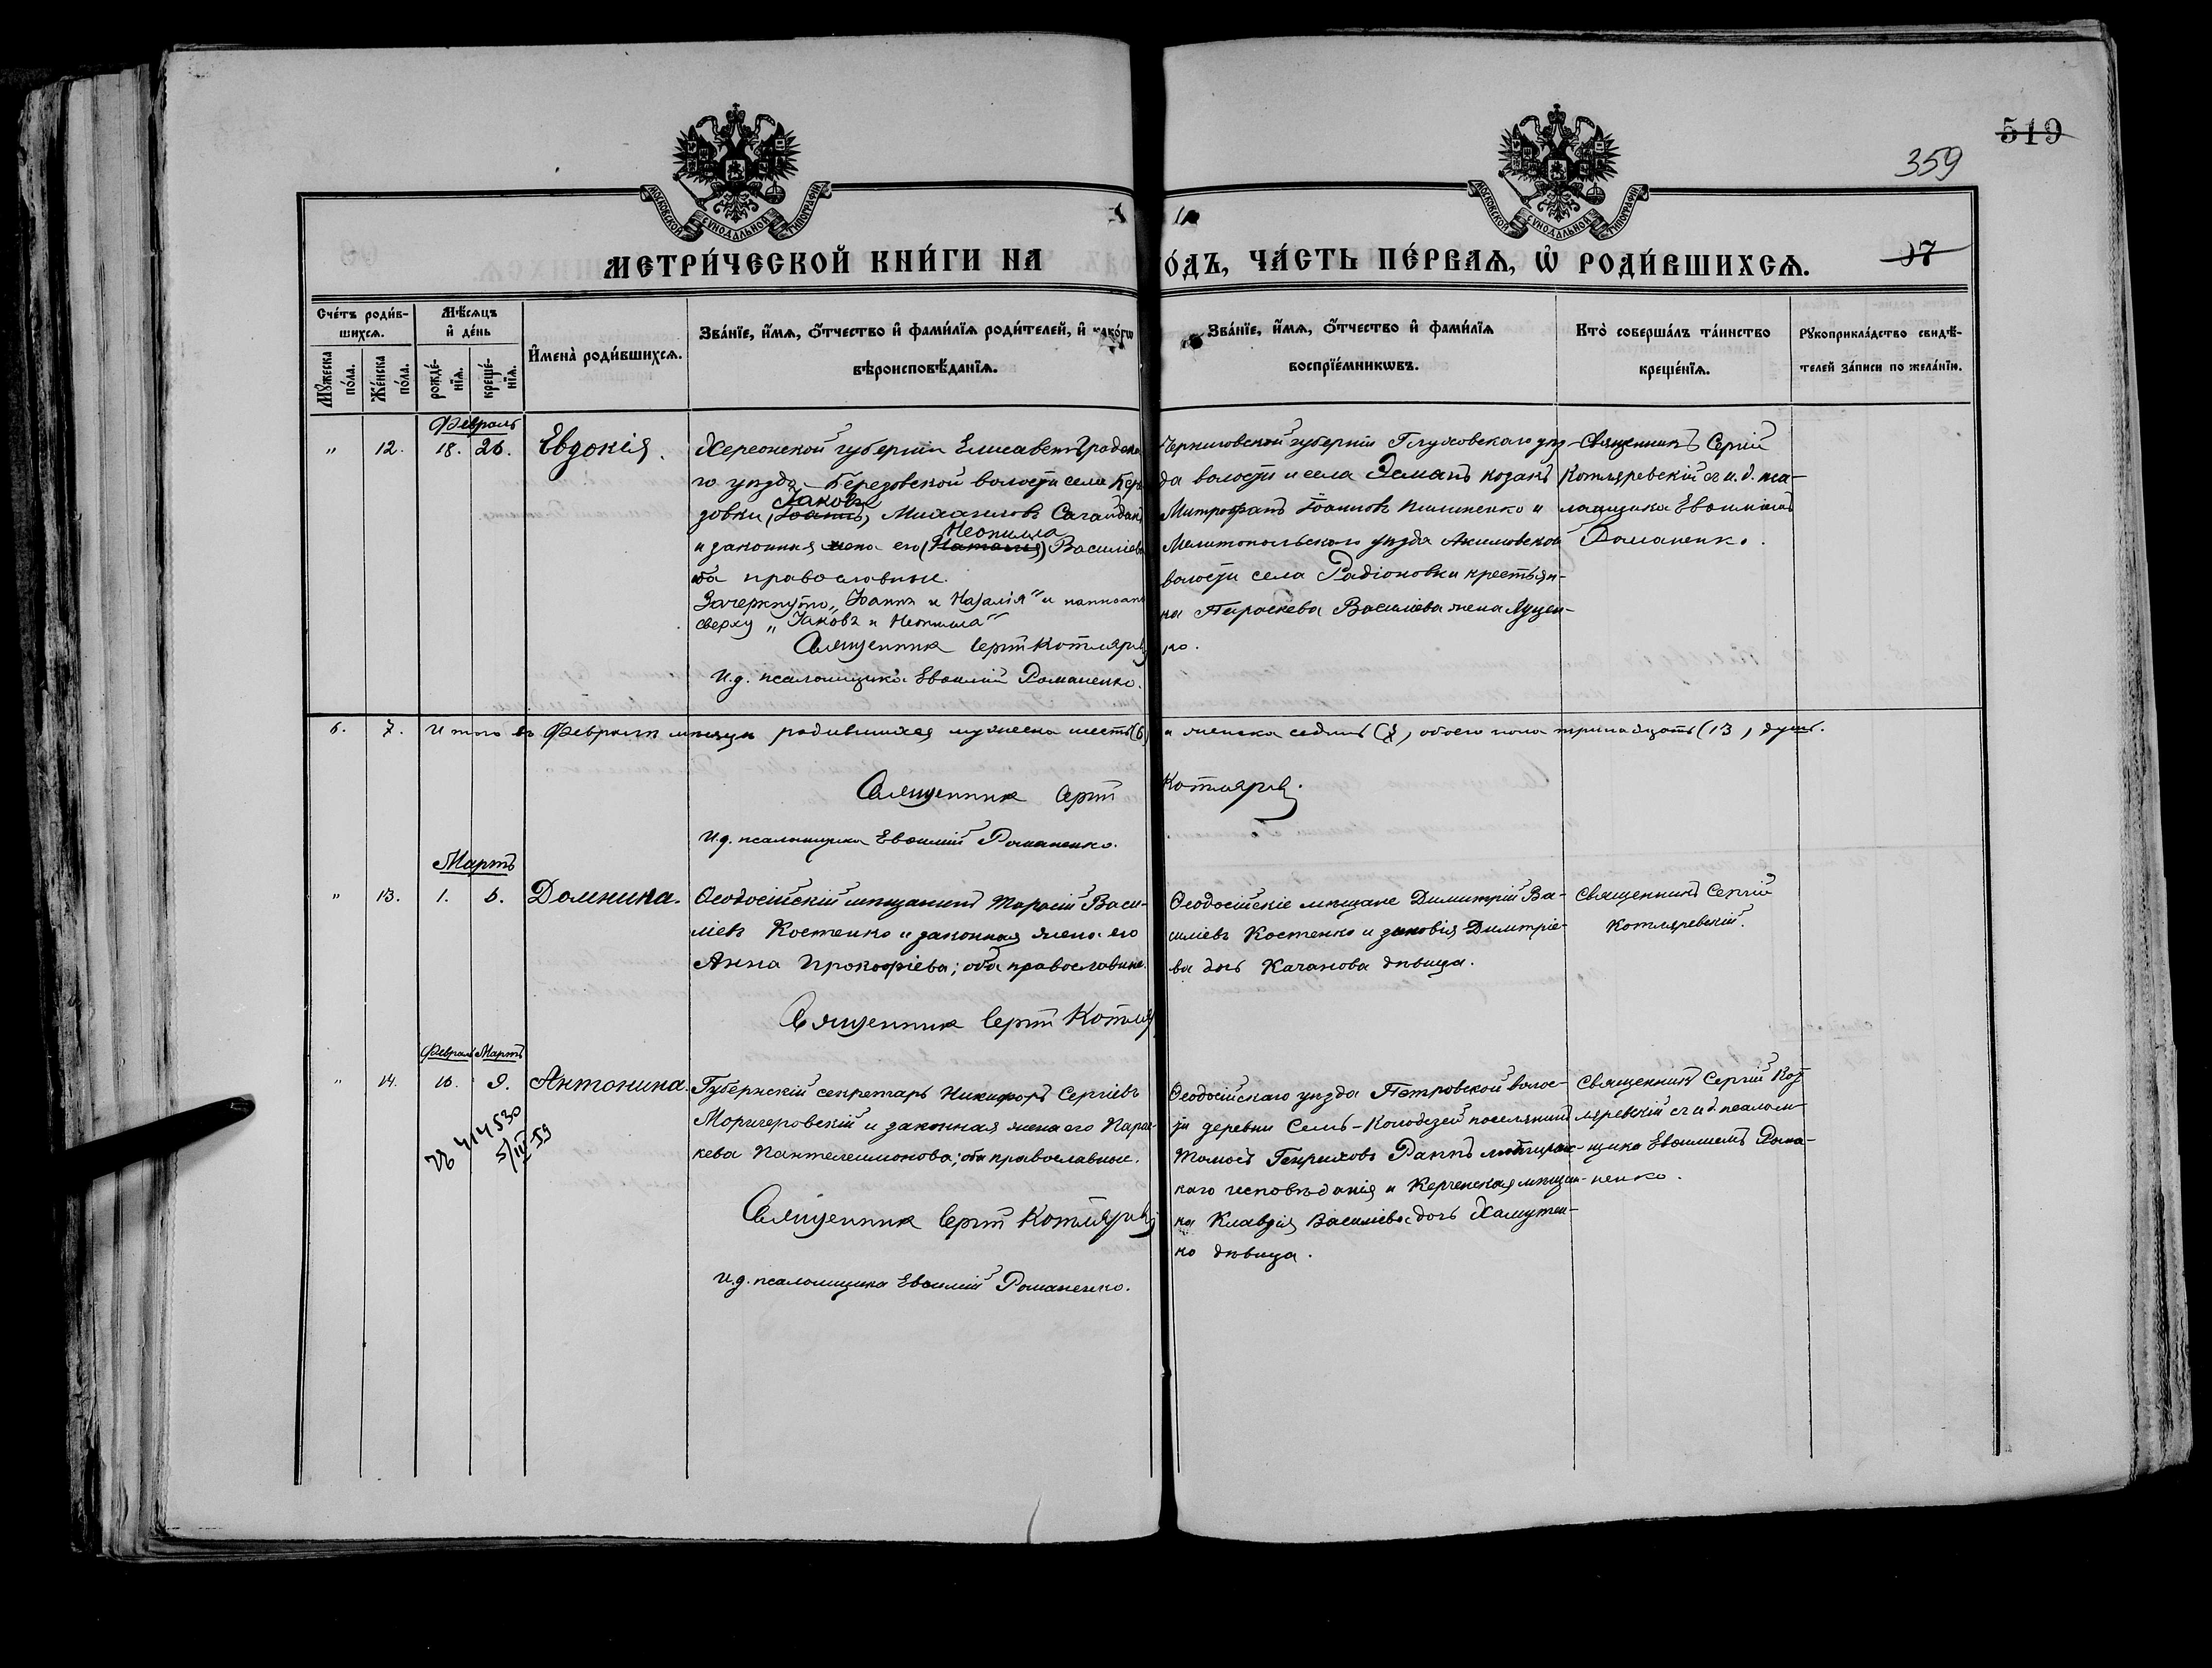 519
359
МОСКОВСКОЙ СѴНОДАЛЬНОЙ ТИПОГРАФІИ
МОСКОВСКОЙ СѴНОДАЛЬНОЙ ТИПОГРАФІИ
МЕТРИ́ЧЕСКОЙ КНИ́ГИ НА
О́ДЪ, ЧА́СТЬ ПЕ́РВАѦ, Ѡ҆ РОДИ́ВШИХСѦ.
Сче́тъ роди́в-
шихсѧ.
Мѣ́сѧцъ
и҆ де́нь
Мꙋ́жеска
по́ла.
Же́нска
по́ла.
рожде́-
нїѧ.
креще́-
нїѧ.
И҆мена̀ роди́вшихсѧ.
Зва́нїе, и҆́мѧ, ѻ҆́тчество и҆ фами́лїѧ роди́телей, и҆ како́гѡ
вѣроисповѣ́данїѧ.
Зва́нїе, и҆́мѧ, ѻ҆́тчество и҆ фами́лїѧ
воспрїе́мникѡвъ.
Кто̀ соверша́лъ та́инство
креще́нїѧ.
Рꙋкоприкла́дство свидѣ́-
телей за́писи по жела́нїю.
Февраль
" 12. 18. 26. Евдокія.
Херсонской губерніи Елисаветградска-
го уѣзда Березовской волости села Бере-
Іаковъ
зовки (Іоаннъ) Михаиловъ Сагайдакъ
Неонилла
и законная жена его (Наталія) Васильева
оба православные.
Зачеркнуто „Іоаннъ и Наталія" и написано
сверху „Іаковъ и Неонилла"
Священникъ Сергій Котляревс
И.д. псаломщика Евѳимій Романенко.
Черниговской губерніи Глуховскаго уѣз-
да волости и села Эсмань козакъ
Митрофанъ Іоанновъ Пилипенко и
Мелитопольскаго уѣзда Акимовской
волости села Радіоновки крестьян-
ка Параскева Васильева жена Луцен-
ко.
Священникъ Сергій
Котляревскій съ и.д. пса-
ломщика Евѳиміемъ
Романенко.
6. 7. Итого въ Февралѣ мѣсяцѣ родившихся мужеска шесть (6) и женска седмь (7), обоего пола тринадцать (13) душъ.
Священникъ Сергій Котлярев.
И.д. псаломщика Евѳимій Романенко.
Мартъ
" 13. 1. 6. Домника.
Ѳеодосійскій мѣщанинъ Тарасій Васи-
ліевъ Костенко и законная жена его
Анна Прокофіева; оба православные.
Священникъ Сергій Котляр
Ѳеодосійскіе мѣщане Димитрій Ва-
силіевъ Костенко и Зиновія Димитріе-
ва дочь Качанова дѣвица.
Священникъ Сергій
Котляревскій.
Февраль Мартъ
" 14. 16. 9. Антонина.
414530
5/III-59
Губернскій секретарь Никифоръ Сергіевъ
Моричеровскій и законная жена его Парас-
кева Пантелеимонова; оба православные.
Священникъ Сергій Котлярев
И.д. псаломщика Евѳимій Романенко.
Ѳеодосійскаго уѣзда Петровской волос-
ти деревни Семь-Колодезей поселянинъ
Томасъ Генриховъ Раппъ лютеранс-
каго исповѣданія и Керченская мѣщан-
ка Клавдія Васильева дочь Хамутен-
ко дѣвица.
Священникъ Сергій Кот-
ляревскій съ и.д. псалом-
щика Евѳиміемъ Рома-
ненко.